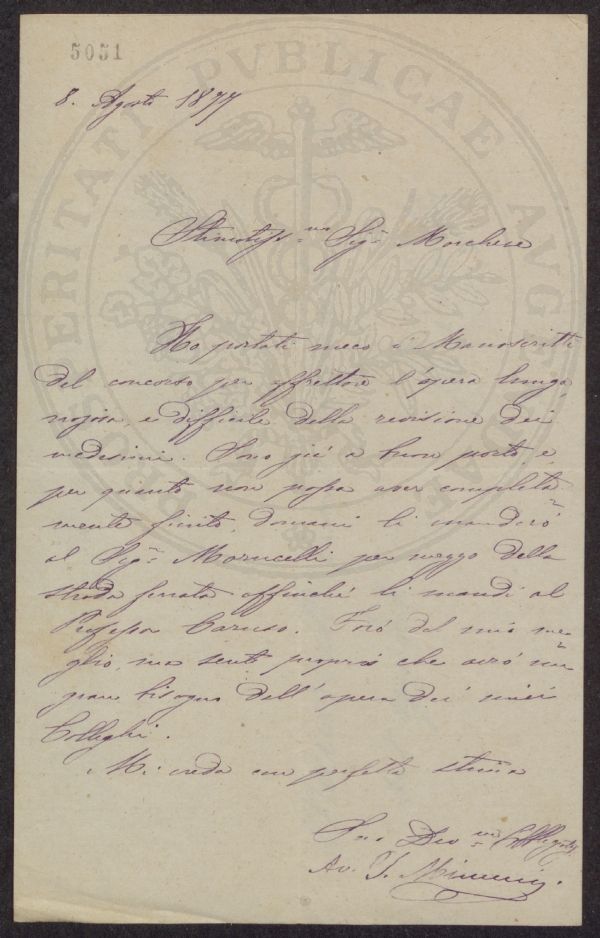 5051
PROSPERITATI PVBLICAE AVGENDAE
8. Agosto 1877
Stimatiss.mo Sig.r Marchese
Ho portati meco i Manoscritti
del concorso per affrettare l'opera lunga,
nojosa, e difficile della revisione dei
medesimi. Sono già a buon porto, e
per quanto non possa aver completa=
mente finito domani li manderò
al Sig.r Marucelli per mezzo della
strada ferrata affinchè li mandi al
Professor Caruso. Farò del mio me=
glio, ma sento proprio che avrò un
gran bisogno dell'opera dei miei
Colleghi.
Mi creda con perfetta stima
Suo Dev.mo
Av.